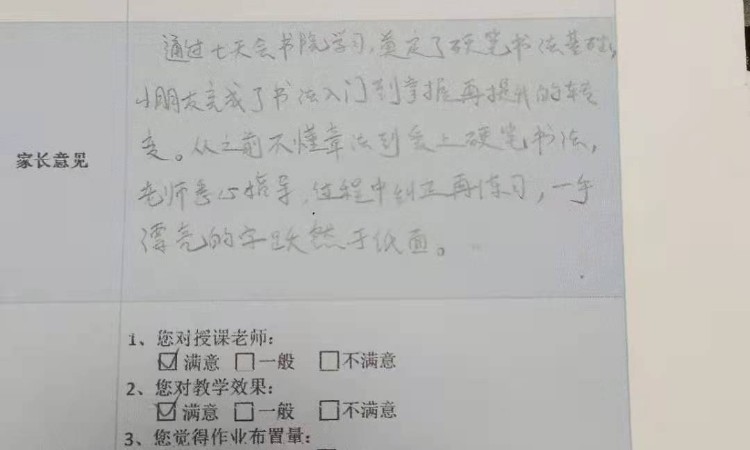 通过七天会书院学习,奠定了硬笔书法基础,
小朋友完成了书法入门到掌握再提升的转变
变。从之前不懂章法到爱上硬笔书法,
家长意见
老师悉心指导,过程中纠正再练习,一手
漂亮的字跃然于纸面。
1、您对授课老师:
☑满意 □一般 □不满意
2、您对教学效果:
☑满意 □一般 □不满意
3、您觉得作业布置量: